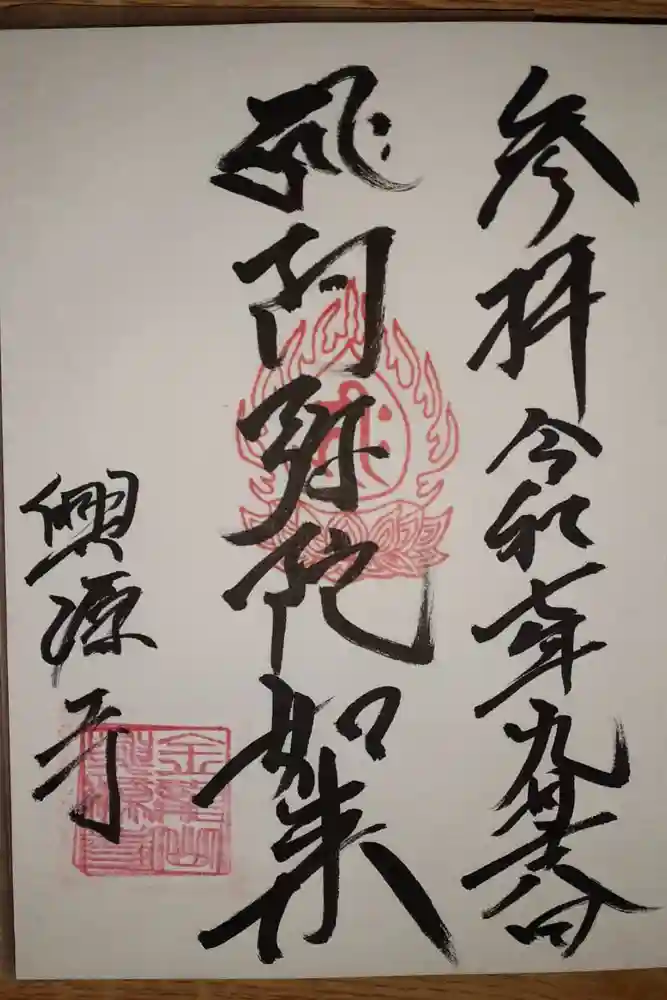 参拝 令和七年九月二十八日
阿弥陀如来
興源寺
金龍山
興源寺